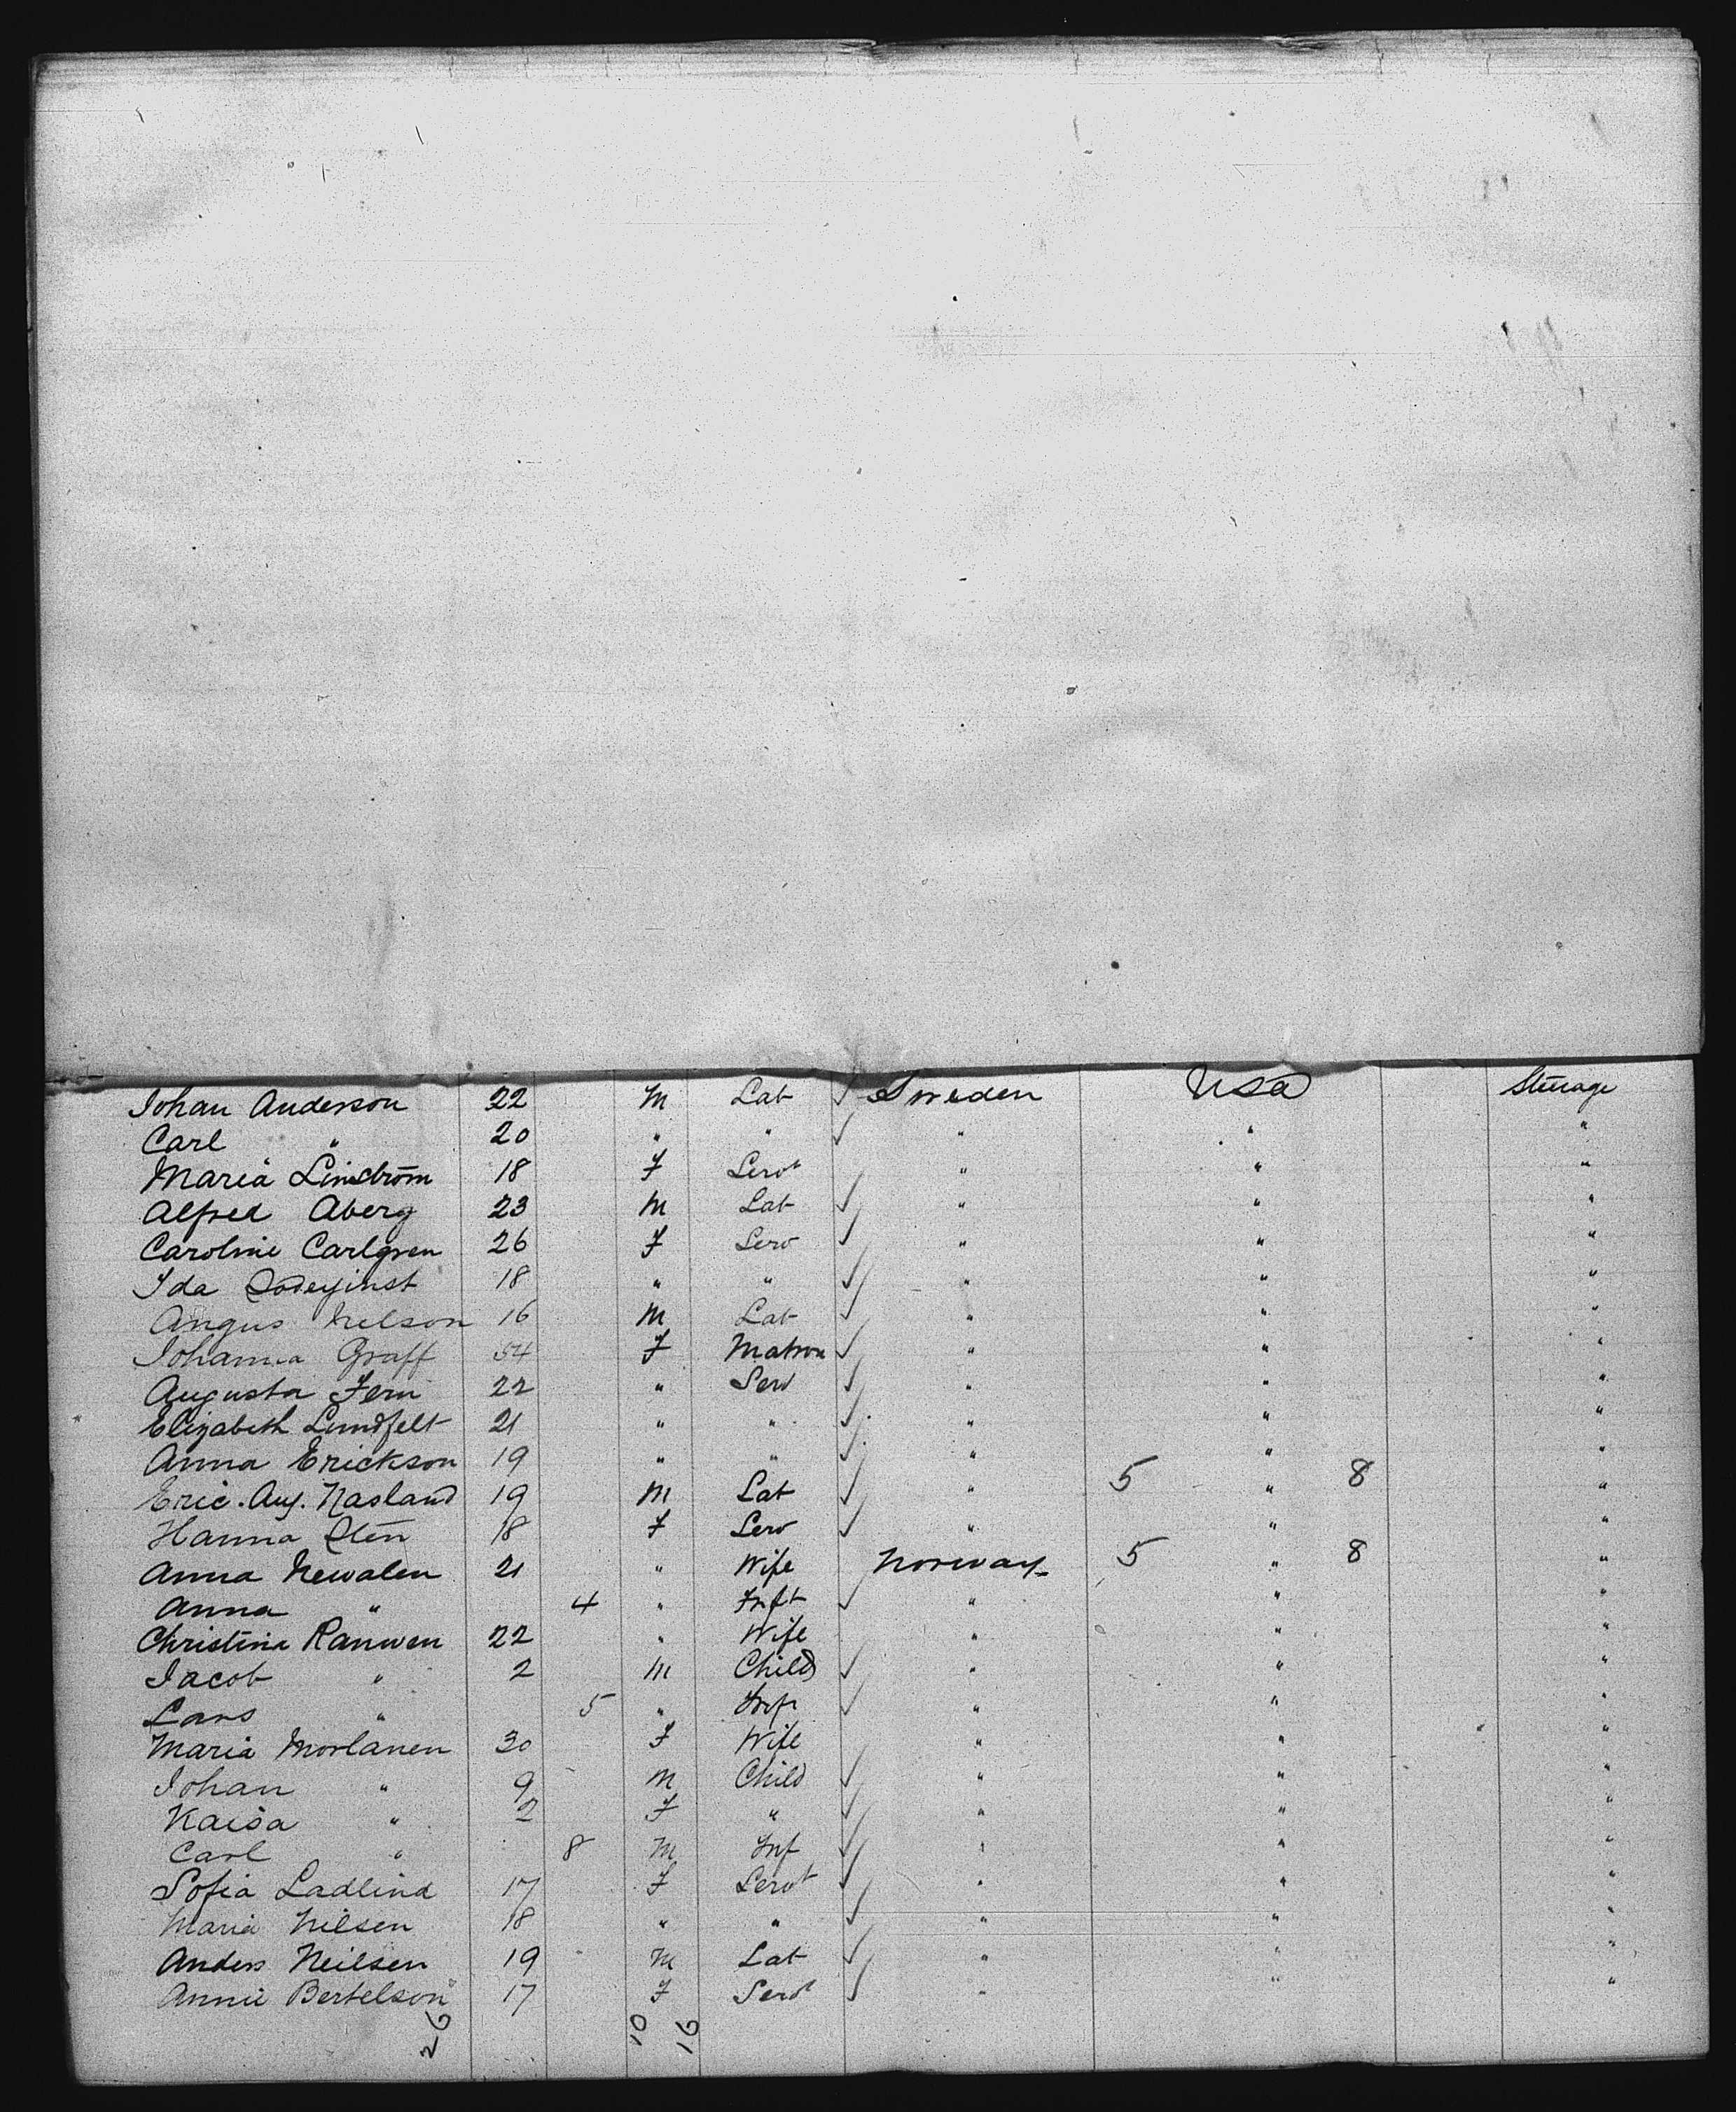 Johan Anderson 22 M Lab ✓ Sweden USA Steerage
Carl " 20 " " ✓ " " "
Maria Lindström 18 F Servt " " "
Alfred Aberg 23 M Lab ✓ " " "
Caroline Carlgren 26 F Serv ✓ " " "
Ida 18 " " ✓ " " "
Angus Nelson 16 M Lab ✓ " " "
Johanna Graff 54 F Matron ✓ " " "
Augusta Fern 22 " Serv ✓ " " "
Elizabeth Lundfelt 21 " " ✓ " " "
Anna Erickson 19 " " ✓ " " "
Eric. Aug. Nasland 19 M Lab ✓ " 5 " 8 "
Hanna Sten 18 F Serv ✓ " " "
Anna Newalen 21 " Wife Norway 5 " 8 "
Anna " 4 " Inft ✓ " " "
Christina Ranwen 22 " Wife " " "
Jacob " 2 M Child ✓ " " "
Lars " 5 " Inft ✓ " " "
Maria Morlanen 30 F Wife " " "
Johan " 9 M Child ✓ " " "
Kaisa " 2 F " ✓ " " "
Carl " 8 M Inf ✓ " " "
Sofia Ladlind 17 F Servt ✓ " " "
Maria Nilsen 18 " " ✓ " " "
Anders Neilsen 19 M Lab ✓ " " "
Annie Bertelson 17 F Servt ✓ " " "
26 10 16